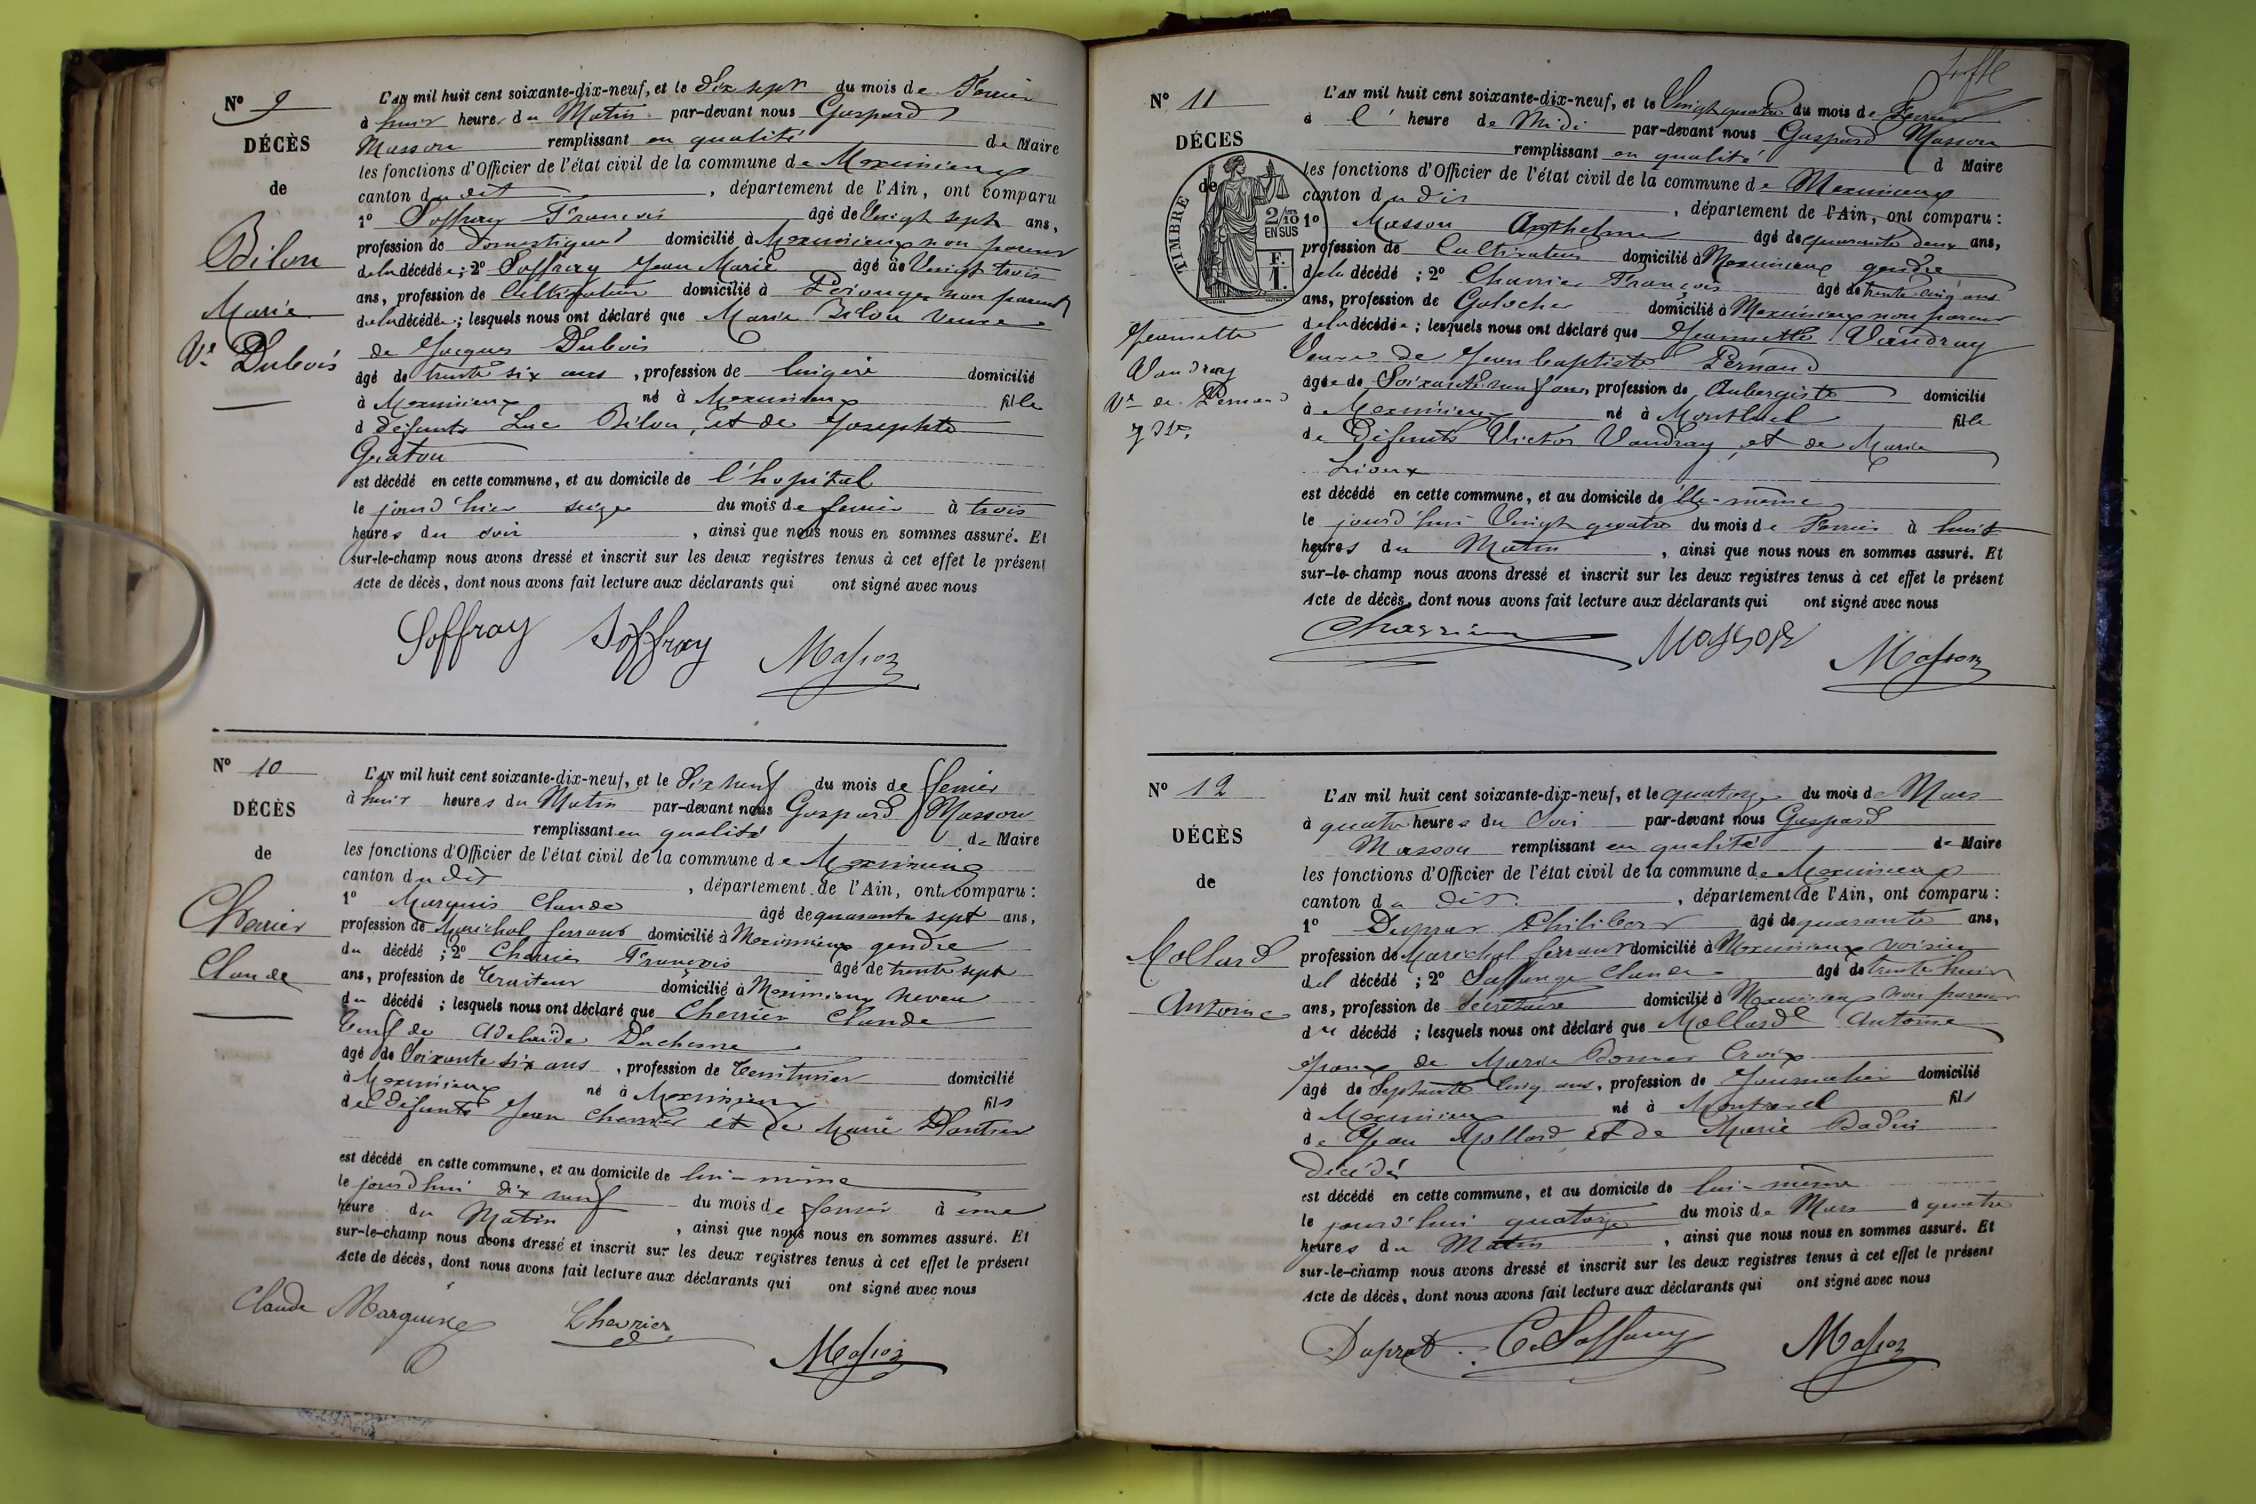 N° 9
DÉCÈS
de
Bilon
Marie
Ve Dubois
L'AN mil huit cent soixante-dix-neuf, et le Dix sept du mois de Fevrier
à huit heures du Matin par-devant nous Gaspard
Masson remplissant en qualité de Maire
les fonctions d'Officier de l'état civil de la commune de Meximieux
canton du dit, département de l'Ain, ont comparu
1° Soffray François âgé de Vingt sept ans,
profession de Domestique domicilié à Meximieux non parent
de la décédée; 2° Soffray Jean Marie âgé de Vingt trois
ans, profession de Cultivateur domicilié à Perouges non parent
de la décédée; lesquels nous ont déclaré que Marie Bilon Veuve
de Jacques Dubois
âgé de trente six ans, profession de lingère domicilié
à Meximieux né à Meximieux fille
d défunts Luc Bilon, et de Josephte
Guaton
est décédé en cette commune, et au domicile de l'hopital
le jourd'hier seize du mois de fevrier à trois
heures du soir, ainsi que nous nous en sommes assuré. Et
sur-le-champ nous avons dressé et inscrit sur les deux registres tenus à cet effet le présent
Acte de décès, dont nous avons fait lecture aux déclarants qui ont signé avec nous
Soffray Soffray Masson
N° 10
DÉCÈS
de
Cherrier
Claude
L'AN mil huit cent soixante-dix-neuf, et le Dix neuf du mois de fevrier
à huit heures du Matin par-devant nous Gaspard Masson
remplissant en qualité de Maire
les fonctions d'Officier de l'état civil de la commune de Meximieux
canton du dit, département de l'Ain, ont comparu:
1° Marquis Claude âgé de quarante sept ans,
profession de Marichal ferrant domicilié à Meximieux gendre
du décédé; 2° Cherrier François âgé de trente sept
ans, profession de domicilié à Meximieux neveu
du décédé; lesquels nous ont déclaré que Cherrier Claude
Veuf de Adelaïde Duchesne
âgé de Soixante six ans, profession de domicilié
à Meximieux né à Meximieux fils
de défunts Jean Cherrier et de Marie
est décédé en cette commune, et au domicile de lui-même
le jourd'hui dix neuf du mois de fevrier à une
heure du Matin, ainsi que nous nous en sommes assuré. Et
sur-le-champ nous avons dressé et inscrit sur les deux registres tenus à cet effet le présent
Acte de décès, dont nous avons fait lecture aux déclarants qui ont signé avec nous
Claude Marquis Cherrier Masson
N° 11
DÉCÈS
de
TIMBRE
2/10 EN SUS
F. 1.
Jeannette
Vaudray
Ve de Pernand
J Bte
L'AN mil huit cent soixante-dix-neuf, et le Vingt quatre du mois de Fevrier
à l' heure de Midi par-devant nous Gaspard Masson
remplissant en qualité d Maire
les fonctions d'Officier de l'état civil de la commune de Meximieux
canton du dit, département de l'Ain, ont comparu:
1° Masson Anthelme âgé de quarante deux ans,
profession de Cultivateur domicilié à Meximieux gendre
de la décédé; 2° Charrier François âgé de trente cinq ans
ans, profession de Galocher domicilié à Meximieux non parent
de la décédée; lesquels nous ont déclaré que Jeannette Vaudray
Veuve de Jean baptiste Pernand
âgée de Soixante neuf ans, profession de Aubergiste domicilié
à Meximieux né à Montluel fille
de Défunts Victor Vaudray, et de Marie
est décédé en cette commune, et au domicile de elle-même
le jourd'hui Vingt quatre du mois de Fevrier à huit
heures du Matin, ainsi que nous nous en sommes assuré. Et
sur-le-champ nous avons dressé et inscrit sur les deux registres tenus à cet effet le présent
Acte de décès, dont nous avons fait lecture aux déclarants qui ont signé avec nous
Charrier Masson Masson
N° 12
DÉCÈS
de
Mollard
Antoine
L'AN mil huit cent soixante-dix-neuf, et le quatorze du mois de Mars
à quatre heures du Soir par-devant nous Gaspard
Masson remplissant en qualité de Maire
les fonctions d'Officier de l'état civil de la commune de Meximieux
canton du dit, département de l'Ain, ont comparu:
1° Duprat Philibert âgé de quarante ans,
profession de Marichal ferrant domicilié à Meximieux voisin
del décédé; 2° Saffange Claude âgé de trente huit
ans, profession de Secretaire domicilié à Meximieux non parent
du décédé; lesquels nous ont déclaré que Mollard Antoine
Epoux de Marie Croix
âgé de Septante Cinq ans, profession de Journalier domicilié
à Meximieux né à Montrevel fils
de Jean Mollard, et de Marie Badin
Décédés
est décédé en cette commune, et au domicile de lui-même
le jourd'hui quatorze du mois de Mars à quatre
heures du Matin, ainsi que nous nous en sommes assuré. Et
sur-le-champ nous avons dressé et inscrit sur les deux registres tenus à cet effet le présent
Acte de décès, dont nous avons fait lecture aux déclarants qui ont signé avec nous
Duprat Masson